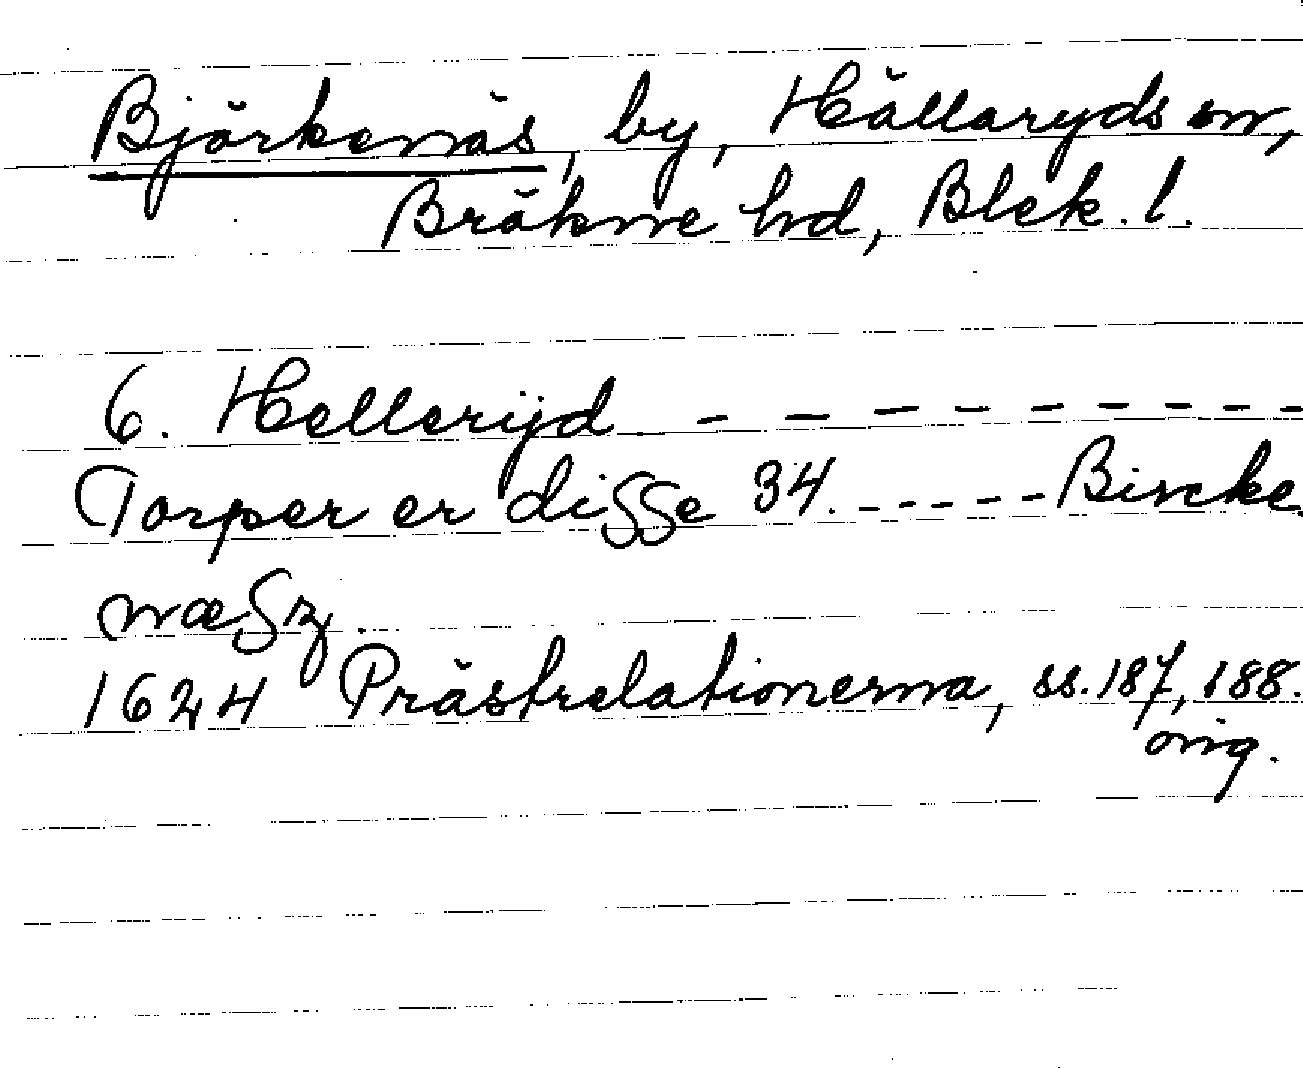 Björkenäs, by, Hällaryds sn,
Bräkne hd, Blek. l.
6. Hellerÿd - - - - - - - - -
Torper er disse 34. - - - - - Bircke
næsz.
1624 Prästrelationerna, ss. 187, 188.
orig.